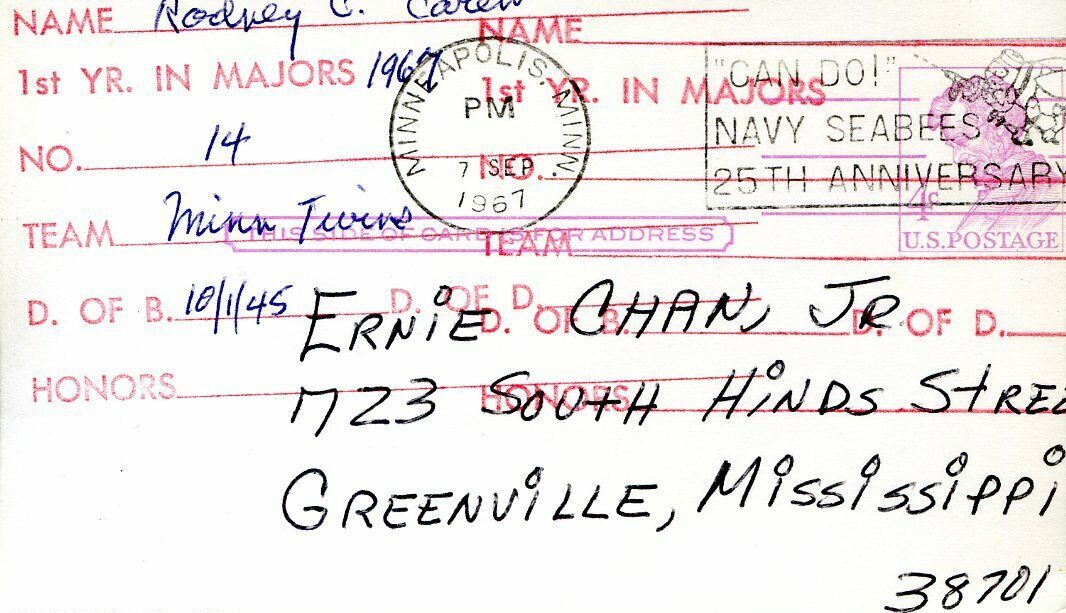 NAME Rodney C. Carew NAME
1st YR. IN MAJORS 1967 1st YR. IN MAJORS
MINNEAPOLIS, MINN.
PM
7 SEP
1967
"CAN DO!"
NAVY SEABEES
25TH ANNIVERSARY
4¢
U.S. POSTAGE
NO. 14 NO.
TEAM Minn Twins TEAM
THIS SIDE OF CARD IS FOR ADDRESS
D. OF B. 10/1/45 D. OF D.
D. OF B. D. OF D.
HONORS HONORS
ERNiE CHAN, JR
1723 SOUTH HiNDS STREE
GREENViLLE, MiSSiSSiPPi
38701